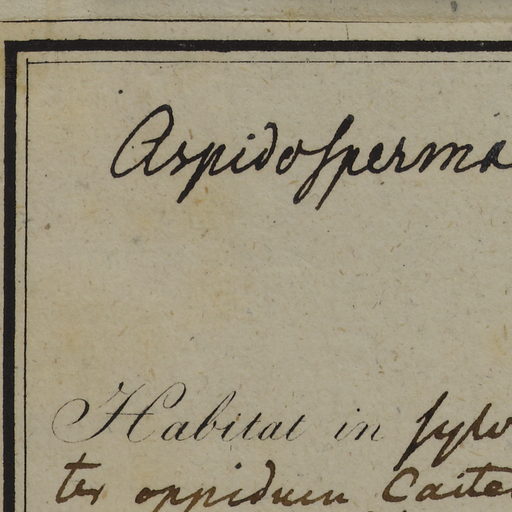 Aspidosperma
Habitat in sylv
ter oppidum Caite